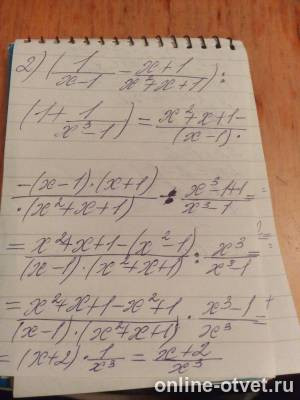 2) (1/(x-1) - (x+1)/(x²+x+1)) :
(1 + 1/(x³-1)) = (x²+x+1-)/((x-1)·
(-(x-1)·(x+1))/(·(x²+x+1)) : (x³-1+1)/(x³-1) =
= (x²+x+1-(x²-1))/((x-1)·(x²+x+1)) : x³/(x³-1) =
= (x²+x+1-x²+1)/((x-1)·(x²+x+1)) · (x³-1)/x³ =
= (x+2) · 1/x³ = (x+2)/x³
online-otvet.ru